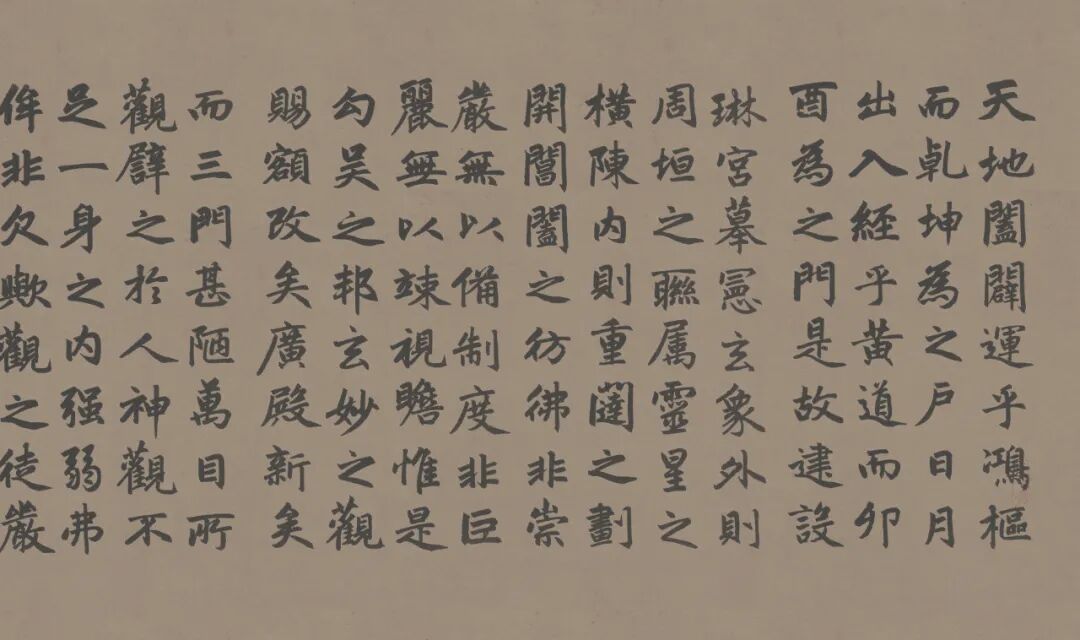 天地闔闢運乎鴻樞
而乹坤為之户日月
出入經乎黃道而卯
酉為之門是故建設
琳宮摹憲玄象外則
周垣之聯属靈星之
橫陳内則重闥之劃
開閶闔之彷彿非崇
嚴無以備制度非巨
麗無以竦視瞻惟是
勾吴之邦玄妙之觀
賜額改矣廣殿新矣
而三門甚陋萬目所
觀譬之於人神觀不
足一身之内强弱弗
侔非欠歟觀之徒嚴